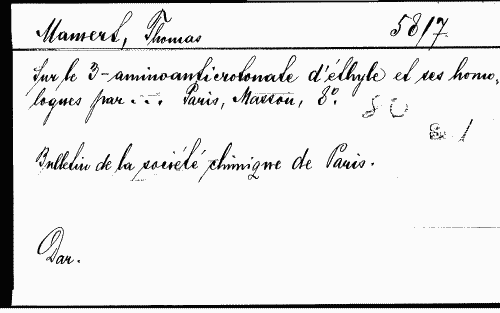 Mamert, Thomas 58/7.
Sur le 3-aminoanticrotonate d'éthyle et ses homo-
logues par ... Paris, Masson, 8°.
80
81
Bulletin de la société chimique de Paris.
Dar.